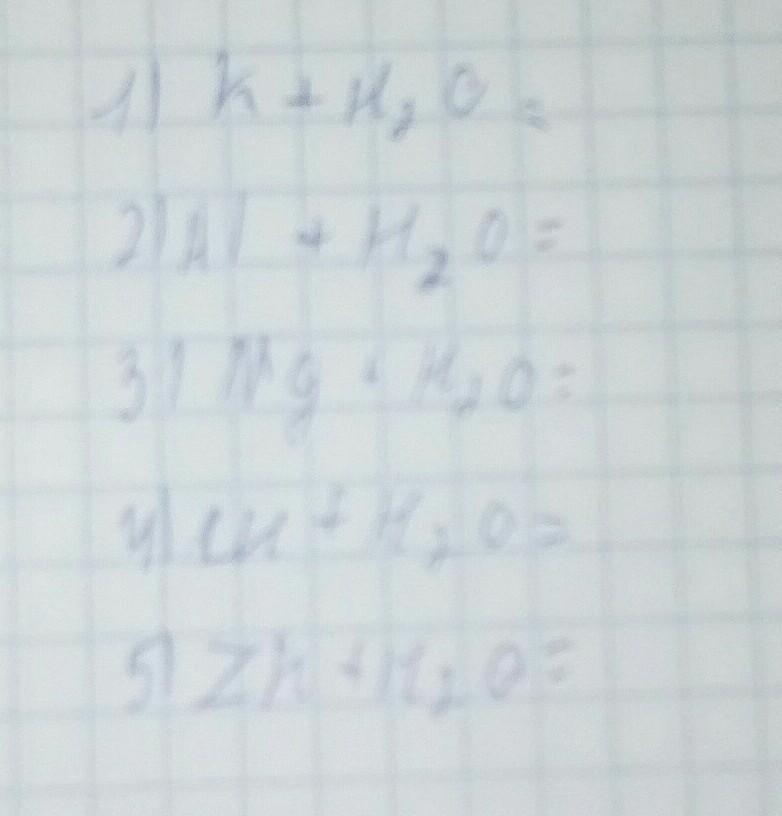 1) K + H₂O =
2) Al + H₂O =
3) Mg + H₂O =
4) Cu + H₂O =
5) Zn + H₂O =